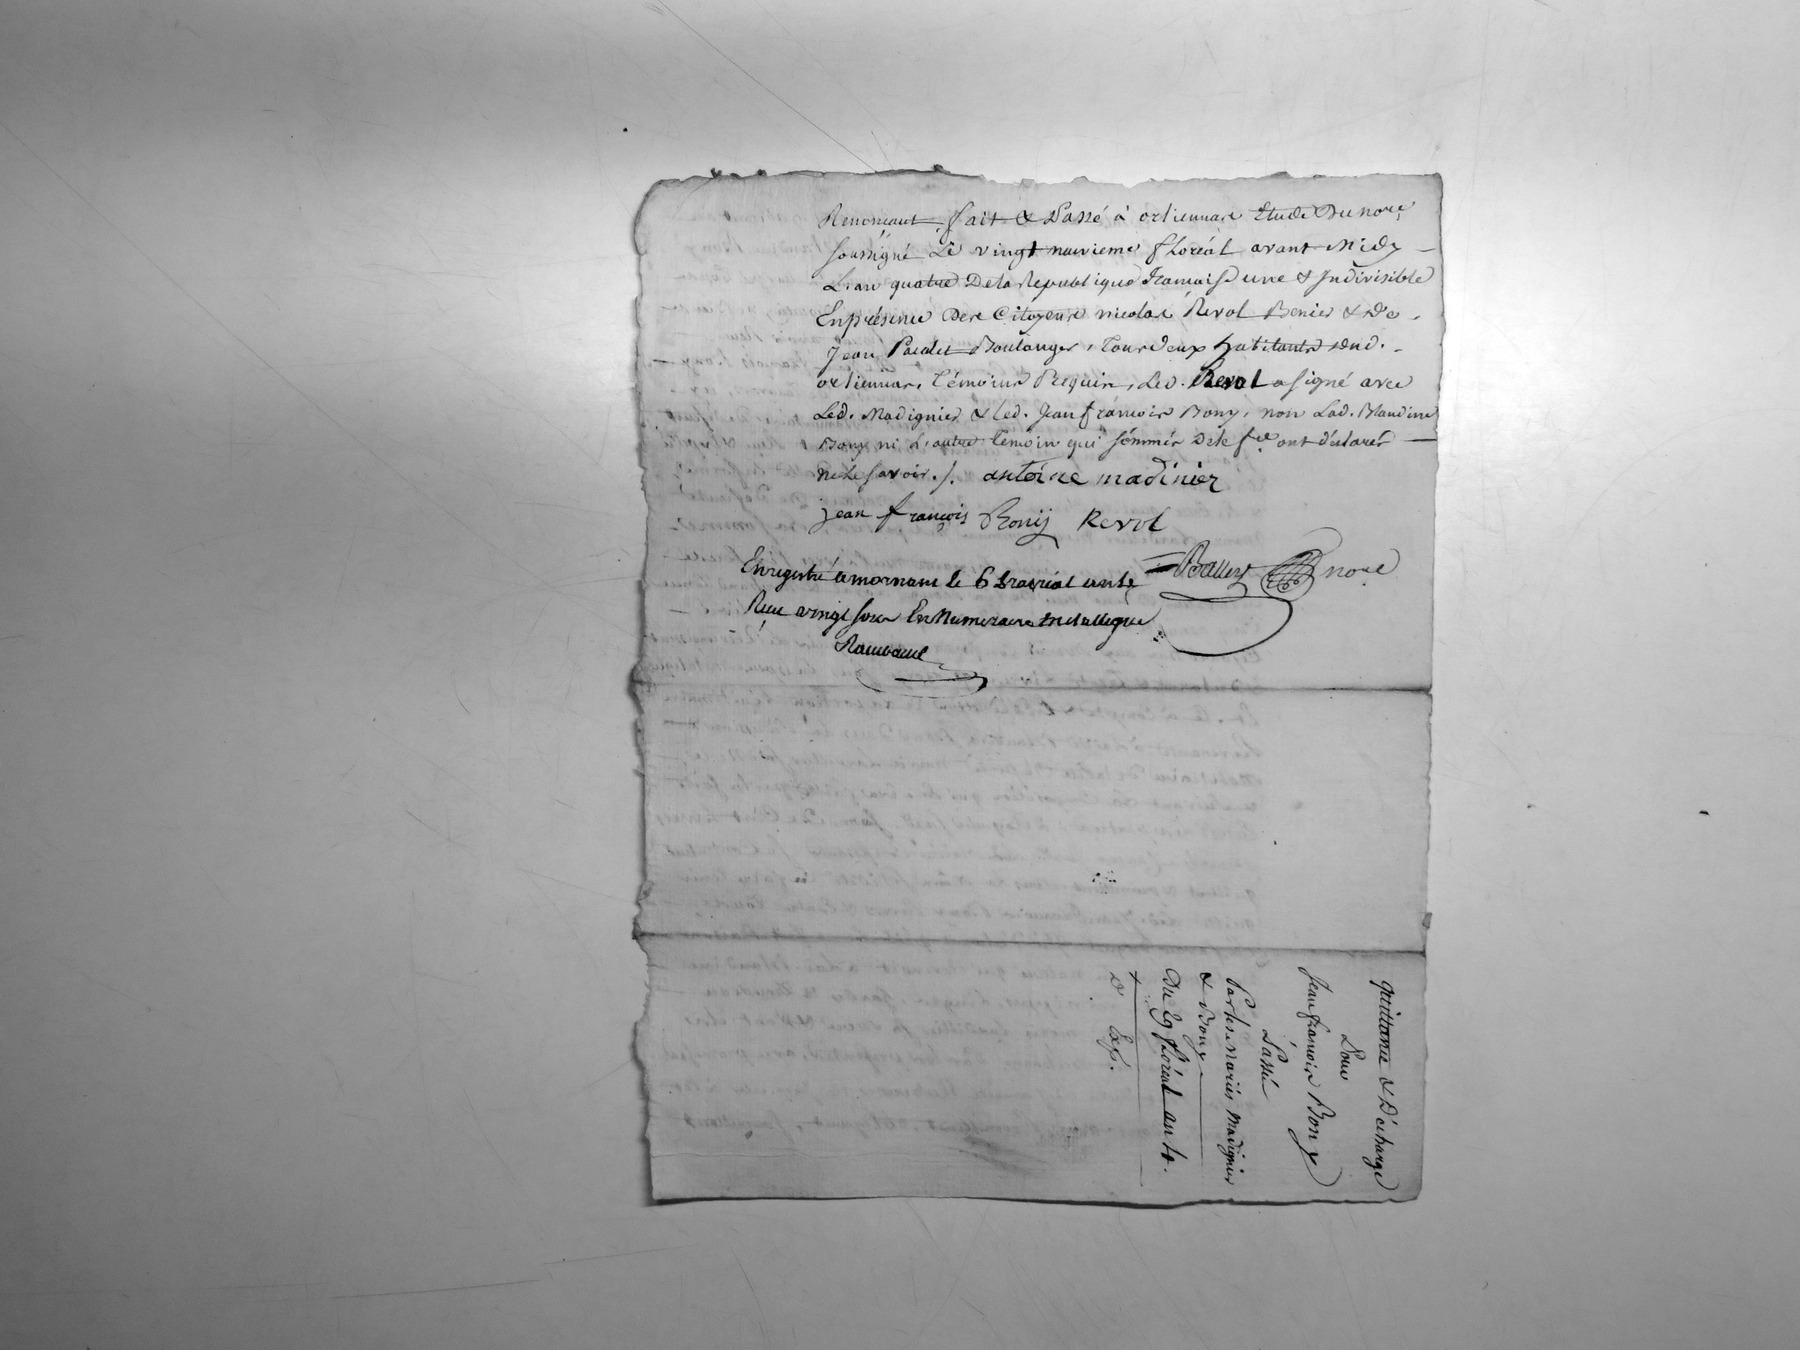 Renonçant fait & Passé à orliennas Etude Du no.re
soussigné Le vingt neuvieme floréal avant Midy
L'an quatre De la Republique francaise une & Indivisible
En présence Des Citoyens nicolas Revol & De
Jean Boulanger, tous deux habitants aud.
orliennas, témoins Requis, Led. Revol a signé avec
Led. Madignier & led. Jean francois Bony, non Lad. Blandine
Bony ni L'autre témoin qui sommés De le f.re ont déclarés
ne le savoir ./. antoine madinier
jean françois Bonij Revol
Enregistré a mornant le 6 prairial an 4e no.re
Reçu vingt sous En Numeraire metallique
quittance & Décharge
Pour
Jean francois Bony
Passée
Par les Mariés Madignier
& Bony
Du 29 floréal an 4.
Exp.